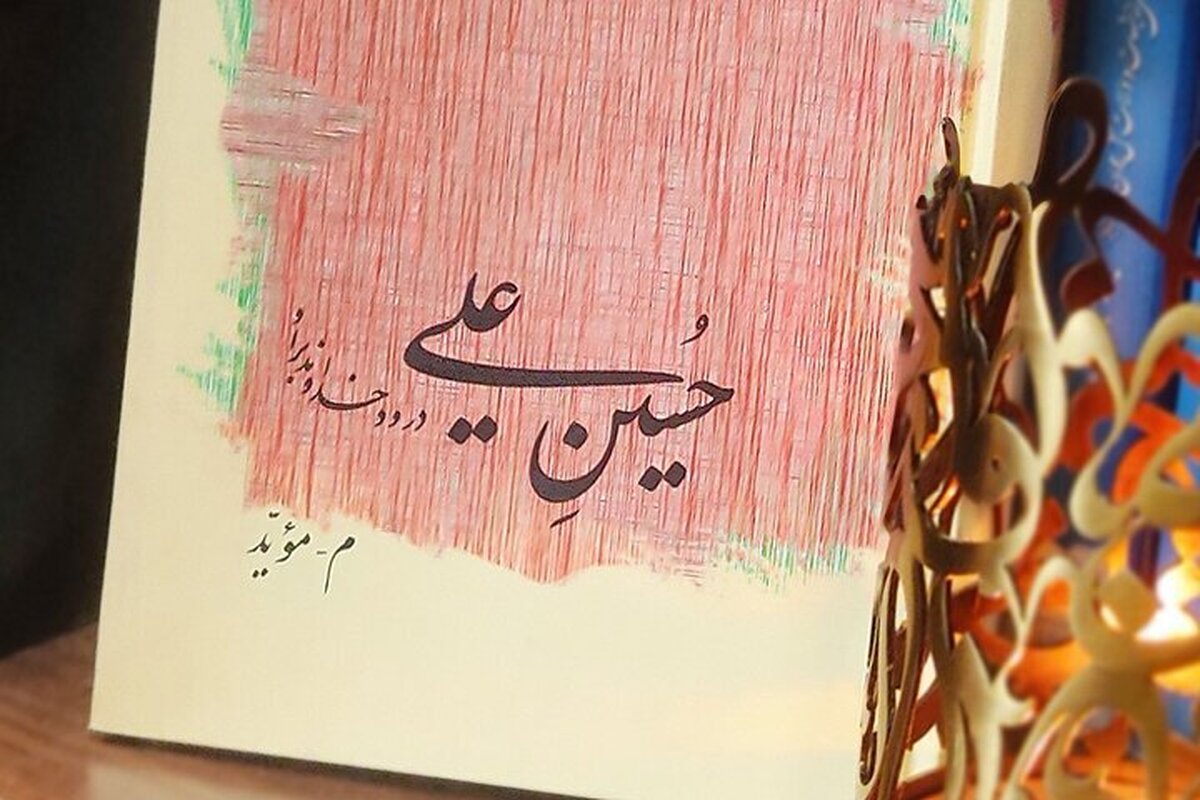 حُسینِ علی
درود خداوند بر اُو
م-مؤیّد